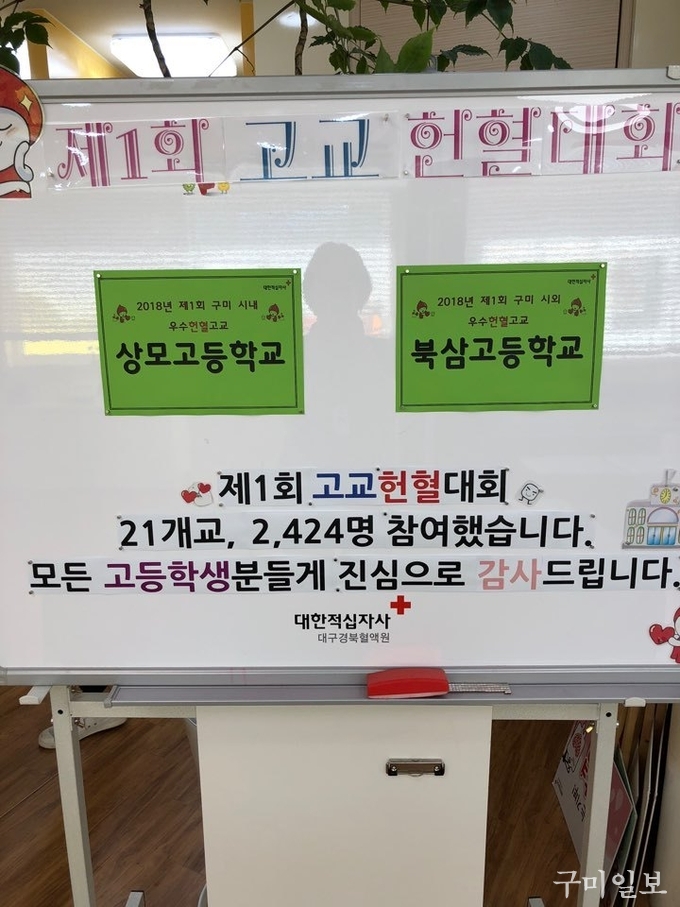 제1회 고교 헌혈대회
대한적십자사
2018년 제1회 구미 시내
우수헌혈고교
상모고등학교
대한적십자사
2018년 제1회 구미 시외
우수헌혈고교
북삼고등학교
제1회 고교헌혈대회
21개교, 2,424명 참여했습니다.
모든 고등학생분들게 진심으로 감사드립니다.
대한적십자사
대구경북혈액원
구미일보